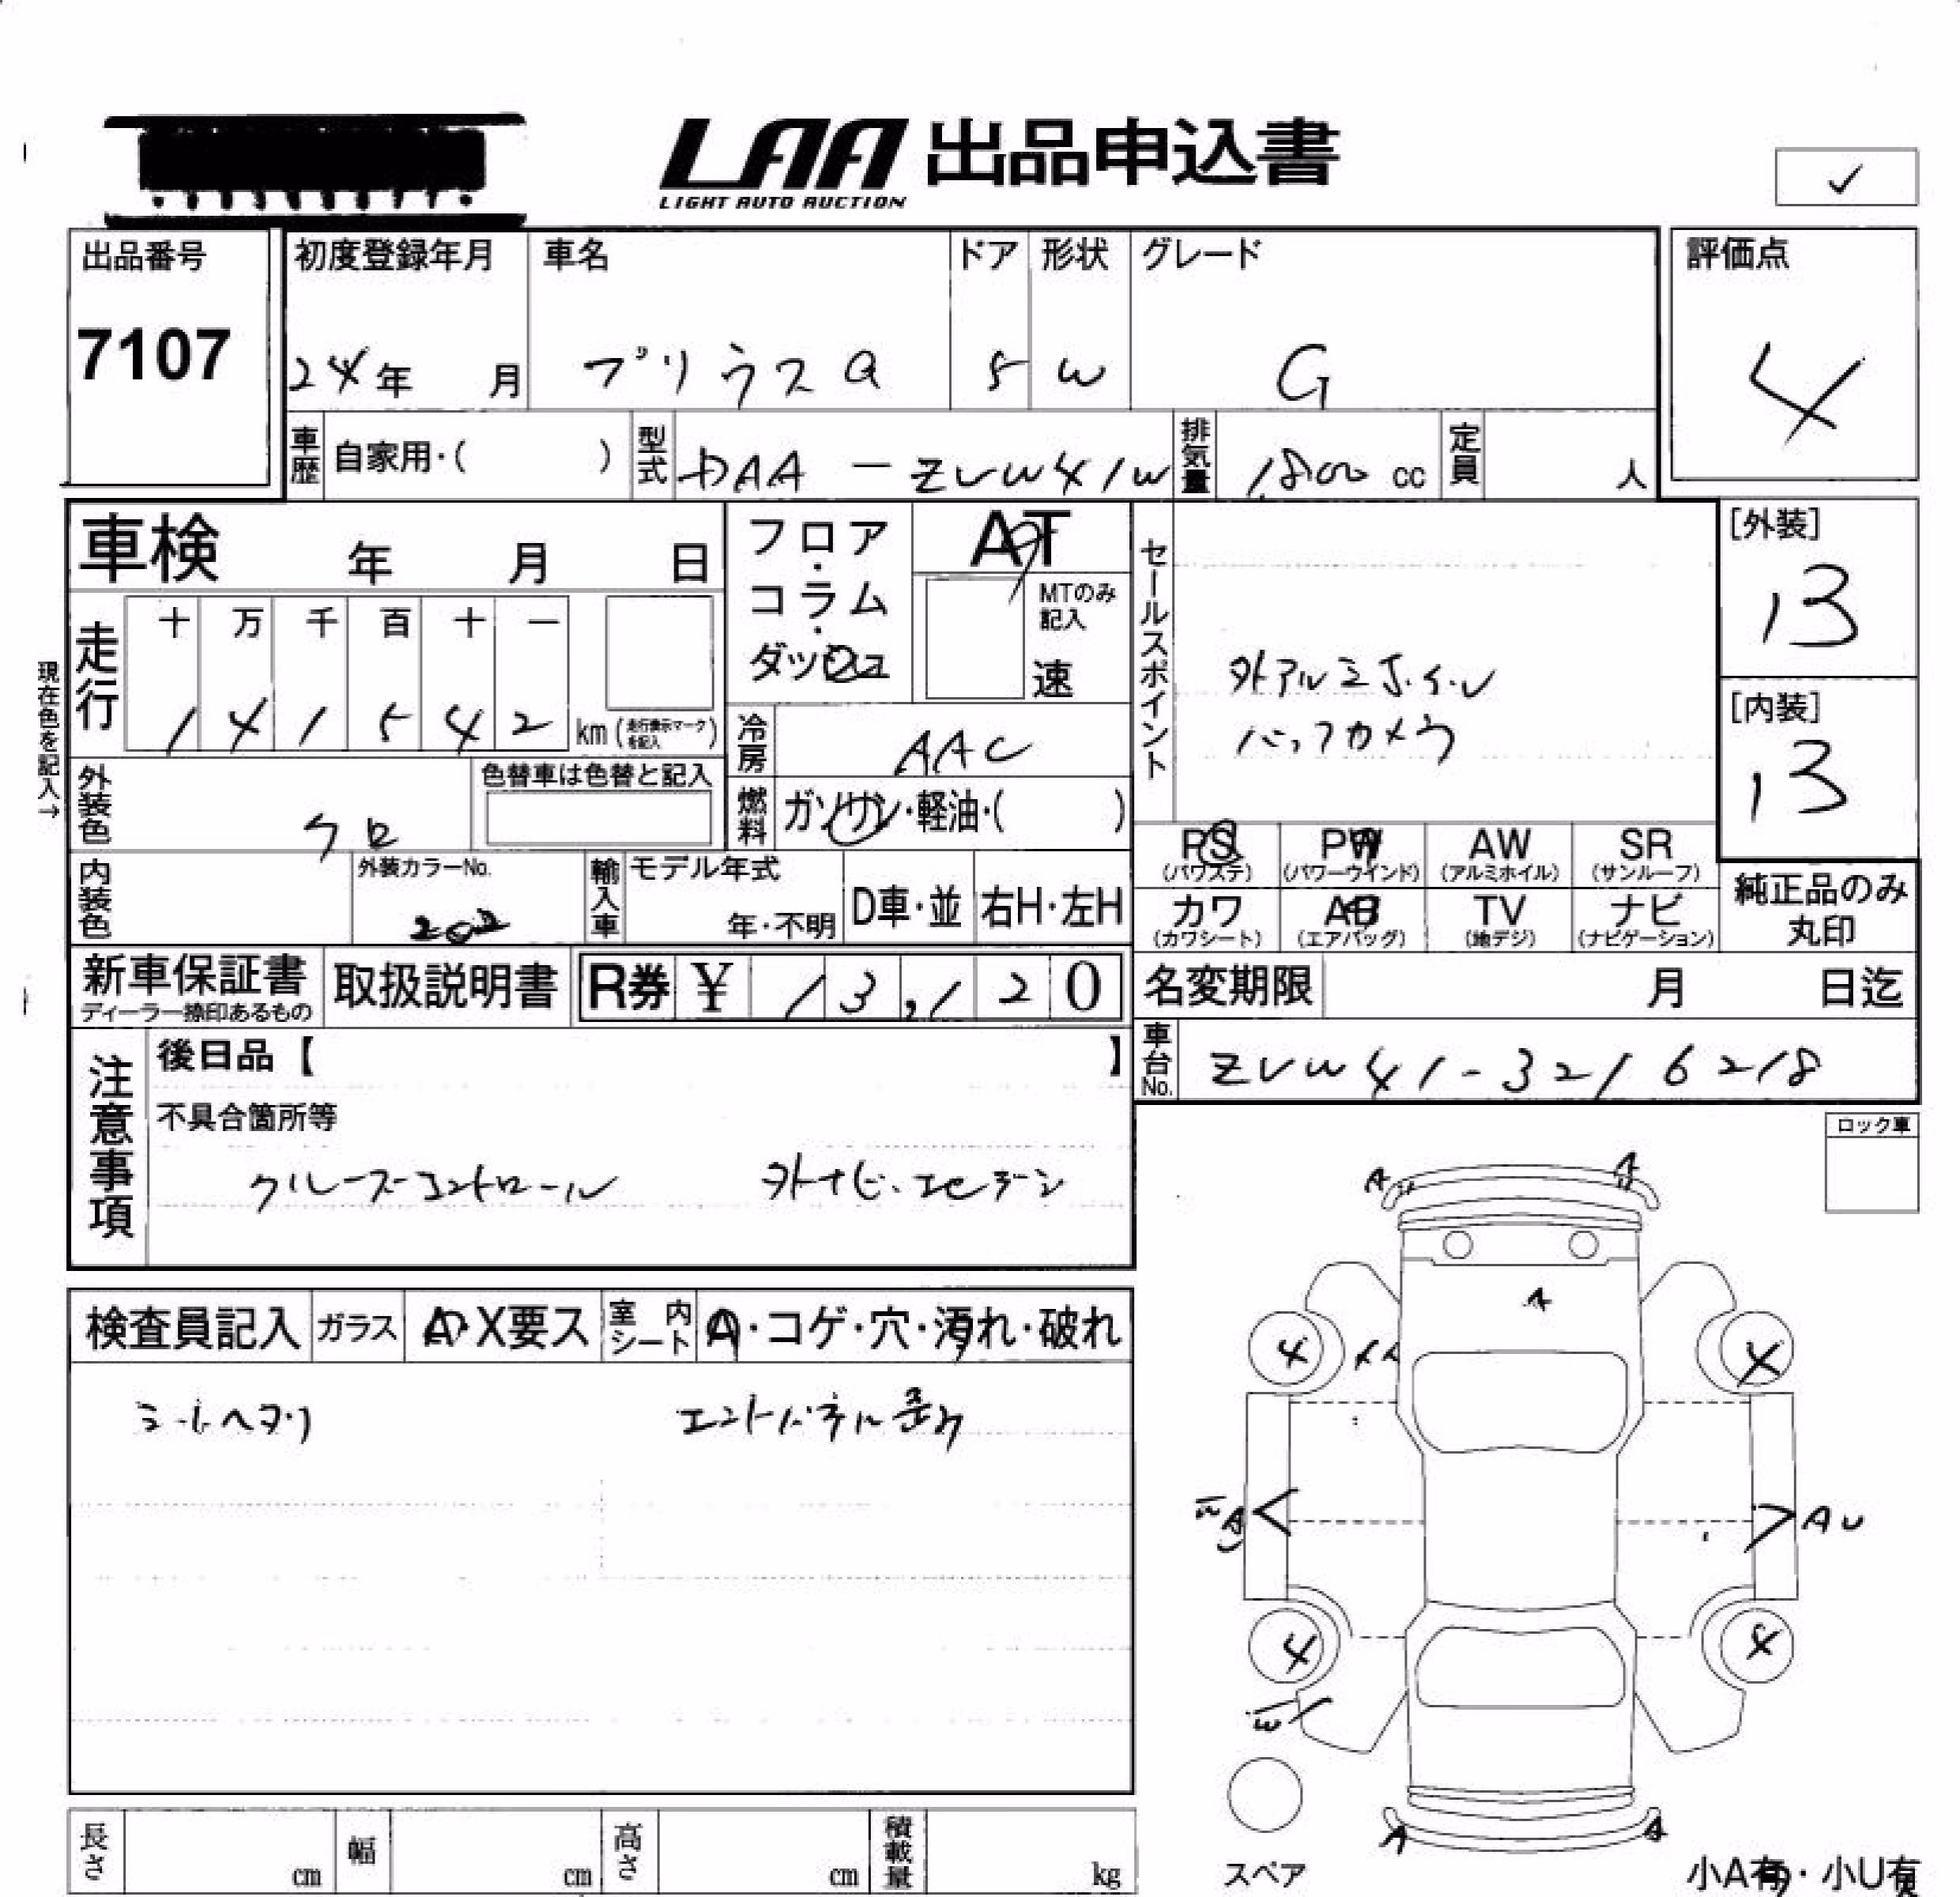 LAA 出品申込書
LIGHT AUTO AUCTION
✓
出品番号
7107
初度登録年月
24年 月
車名
プリウスα
ドア
5
形状
W
グレード
G
評価点
4
車歴
自家用・( )
型式
DAA-ZVW41W
排気量
1,800 cc
定員
人
車検 年 月 日
フロア・コラム・ダッシュ
AT
MTのみ記入
速
セールスポイント
外アルミホイール
バックカメラ
[外装]
13
[内装]
13
現在色を記入→
走行
十 万 千 百 十 一
1 4 1 5 4 2 km (走行表示マークを記入)
冷房
AAC
外装色
クロ
色替車は色替と記入
燃料
ガソリン・軽油・( )
内装色
外装カラーNo.
202
輸入車
モデル年式
年・不明
D車・並
右H・左H
PS (パワステ)
PW (パワーウインド)
AW (アルミホイル)
SR (サンルーフ)
カワ (カワシート)
AB (エアバッグ)
TV (地デジ)
ナビ (ナビゲーション)
純正品のみ丸印
新車保証書
ディーラー捺印あるもの
取扱説明書
R券 ¥ 13,120
名変期限 月 日迄
車台No.
ZVW41-3216218
注意事項
後日品【 】
不具合箇所等
クルーズコントロール 外ナビ・エセデン
ロック車
検査員記入
ガラス
A・X要ス
室内シート
A・コゲ・穴・汚れ・破れ
シートヘタリ
A
A
A
4
4
A
AU
4
4
A
A
スペア
小A有・小U有
長さ
cm
幅
cm
高さ
cm
積載量
kg